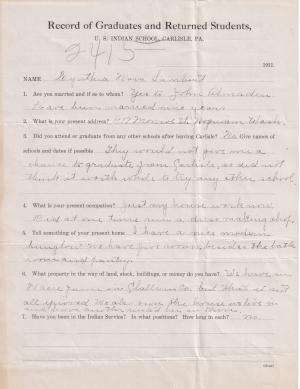 Record of Graduates and Returned Students,
U. S. INDIAN SCHOOL, CARLISLE, PA.
2415
1911.
NAME Cynthia Nora Lambert
1. Are you married and if so to whom? Yes to John
have been married nine years
2. What is your present address? 417 Monroe St. Hoquiam Wash.
3. Did you attend or graduate from any other schools after leaving Carlisle? No Give names of
schools and dates if possible They would not give me a
chance to graduate from Carlisle, so did not
think it worth while to try any other school
4. What is your present occupation? Just my house work now
Did at one time run a dress making shop.
5. Tell something of your present home I have a nice modern
bungalow. We have five rooms besides the bath
room and pantry.
6. What property in the way of land, stock, buildings, or money do you have? We have an
acre farm in Clallam Co. but that is not
all improved We also own the house we live in
and have another
7. Have you been in the Indian Service? In what positions? How long in each? no.
(Over)